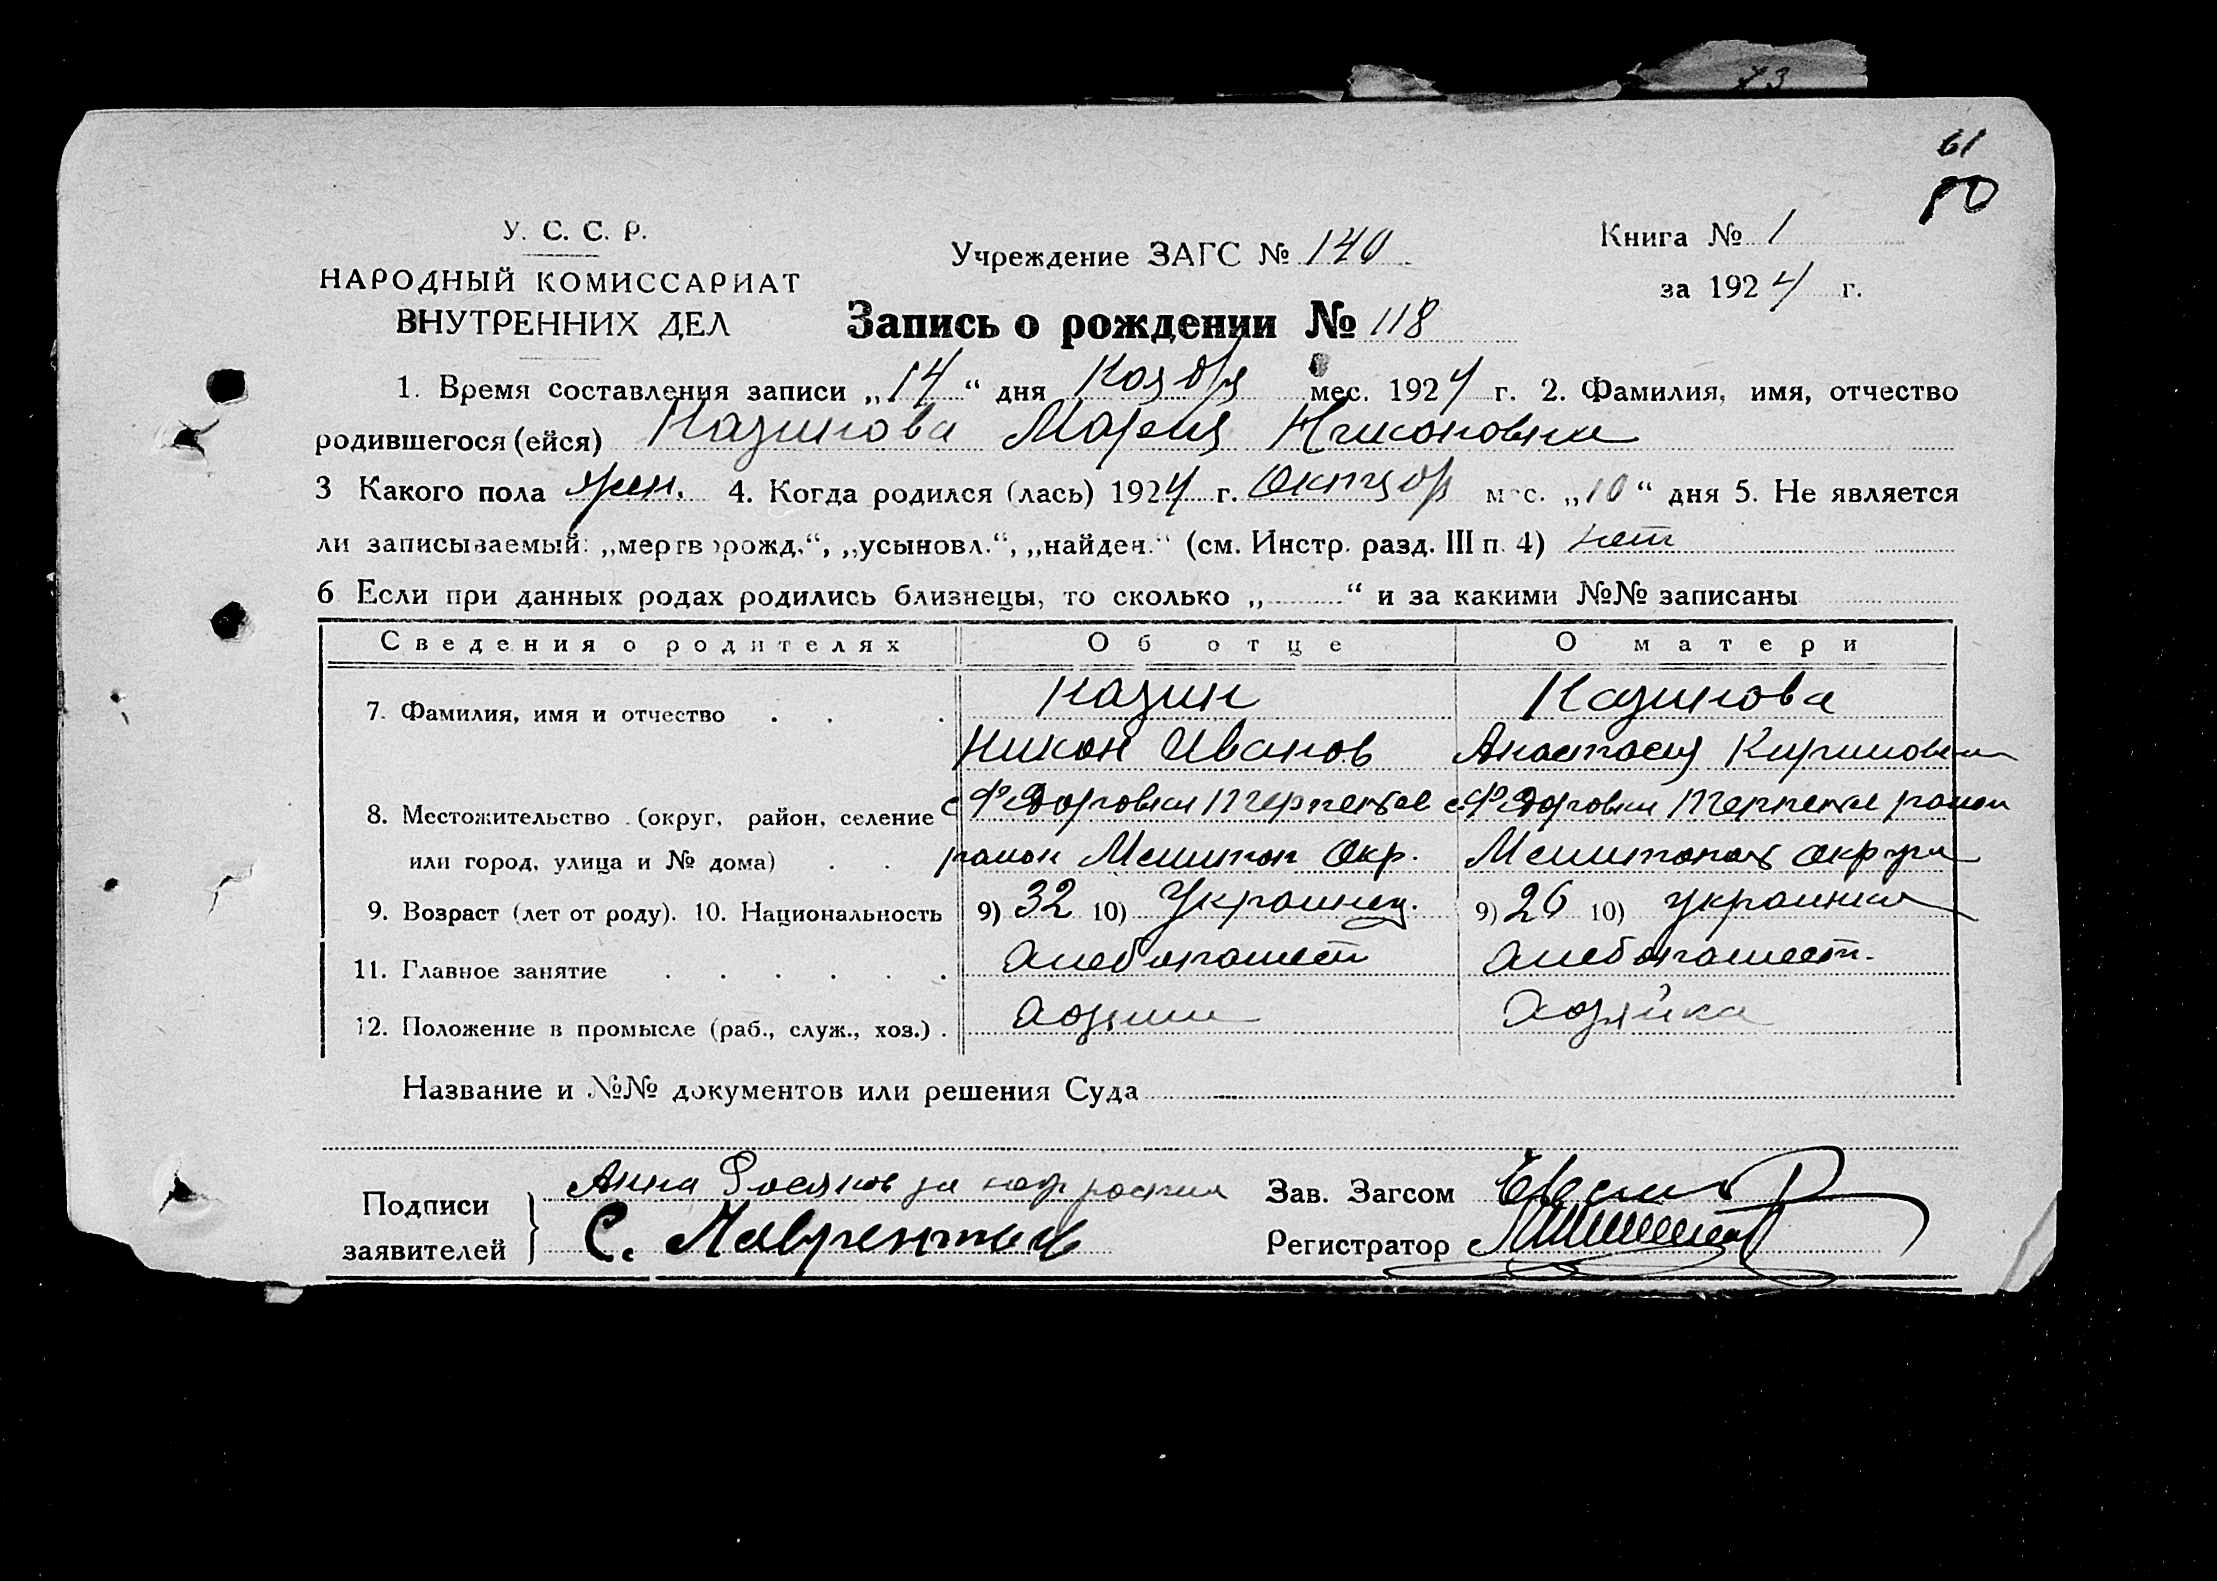 73
61
80
У. С. С. Р.
НАРОДНЫЙ КОМИССАРИАТ
ВНУТРЕННИХ ДЕЛ
Учреждение ЗАГС № 140
Книга № 1
за 1924 г.
Запись о рождении № 118
1. Время составления записи „14“ дня Ноября мес. 1924 г. 2. Фамилия, имя, отчество
родившегося (ейся) Казинова Мария Никоновна
3 Какого пола жен. 4. Когда родился (лась) 1924 г. Октября мес. „10“ дня 5. Не является
ли записываемый: „мертворожд.“, „усыновл.“, „найден.“ (см. Инстр. разд. III п. 4) нет
6 Если при данных родах родились близнецы, то сколько „ “ и за какими №№ записаны
Сведения о родителях Об отце О матери
7. Фамилия, имя и отчество Казин Казинова
Никон Иванов Анастасия Кириловна
8. Местожительство (округ, район, селение с Федоровка с. Федоровка район
или город, улица и № дома) район Мелитоп Окр. Мелитополь округа
9. Возраст (лет от роду). 10. Национальность 9) 32 10) Украинец. 9) 26 10) украинка
11. Главное занятие Хлебопашест Хлебопашест.
12. Положение в промысле (раб., служ., хоз.) Хозяин Хозяйка
Название и №№ документов или решения Суда
Подписи заявителей Анна за
С. Лаврентьев
Зав. Загсом
Регистратор